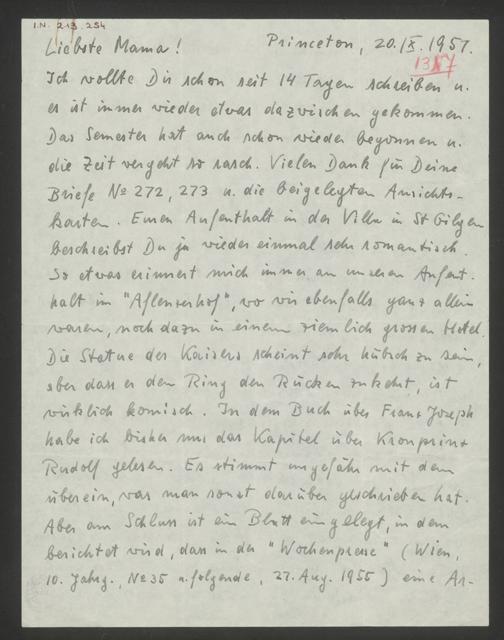 I.N. 213.254
Liebste Mama! Princeton, 20./X. 1957.
Ich wollte Dir schon seit 14 Tagen schreiben u.
es ist immer wieder etwas dazwischen gekommen.
Das Semester hat auch schon wieder begonnen u.
die Zeit vergeht so rasch. Vielen Dank für Deine
Briefe No 272, 273 u. die beigelegten Ansichts-
karten. Euren Aufenthalt in der Villa in St Gilgen
beschreibst Du ja wieder einmal sehr romantisch.
So etwas erinnert mich immer an unseren Aufent-
halt im "Aflenzerhof", wo wir ebenfalls ganz allein
waren, noch dazu in einem ziemlich grossen Hotel.
Die Statue des Kaisers scheint sehr hübsch zu sein,
aber dass er dem Ring den Rücken zukehrt, ist
wirklich komisch. In dem Buch über Franz Joseph
habe ich bisher nur das Kapitel über Kronprinz
Rudolf gelesen. Es stimmt ungefähr mit dem
überein, was man sonst darüber geschrieben hat.
Aber am Schluss ist ein Blatt eingelegt, in dem
berichtet wird, dass in der "Wochenpresse" (Wien,
10. Jahrg., No 35 u. folgende, 27. Aug. 1955) eine Ar-